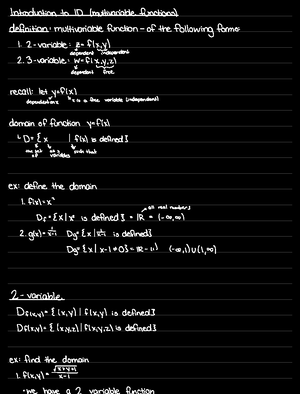 Introduction to 1D (multivariable functions)
definition: multivariable function - of the following forms:
1. 2-variable: z = f(x,y)
dependent independent
2. 3-variable: w = f(x,y,z)
dependent free
recall: let y=f(x)
dependent on x x is a free variable (independent)
domain of function y=f(x)
↳ D = { x | f(x) is defined }
the set of all x variables such that
ex: define the domain
1. f(x) = x²
all real numbers
Df = { x | x² is defined } = ℝ = (-∞,∞)
2. g(x) = 1/(x-1) Dg = { x | 1/(x-1) is defined }
Dg = { x | x-1 ≠ 0 } = ℝ - 1 } (-∞,1) ∪ (1,∞)
2-variable
Df(x,y) = { (x,y) | f(x,y) is defined }
Df(x,y) = { (x,y,z) | f(x,y,z) is defined }
ex: find the domain
1. f(x,y) = √(x+y+1)/(x-1)
we have a 2 variable function